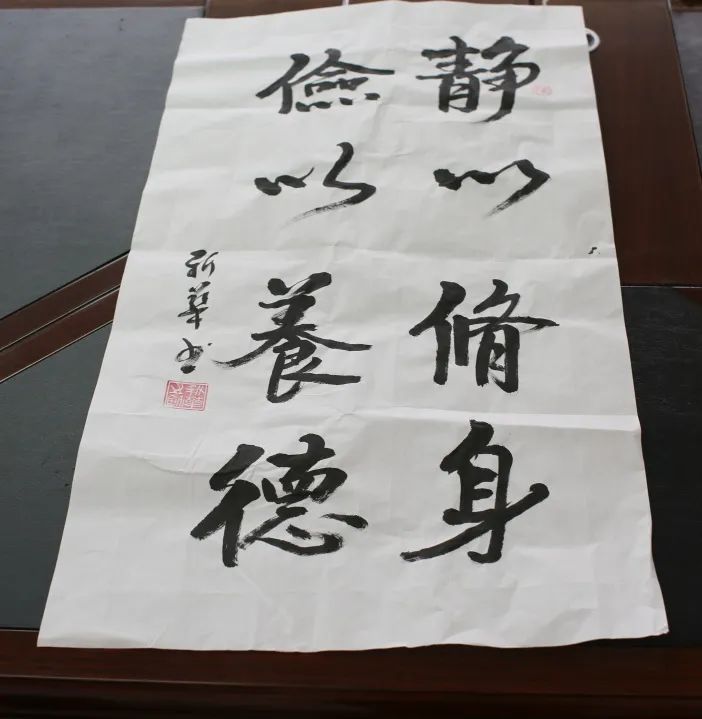 靜以脩身
儉以養德
新華書